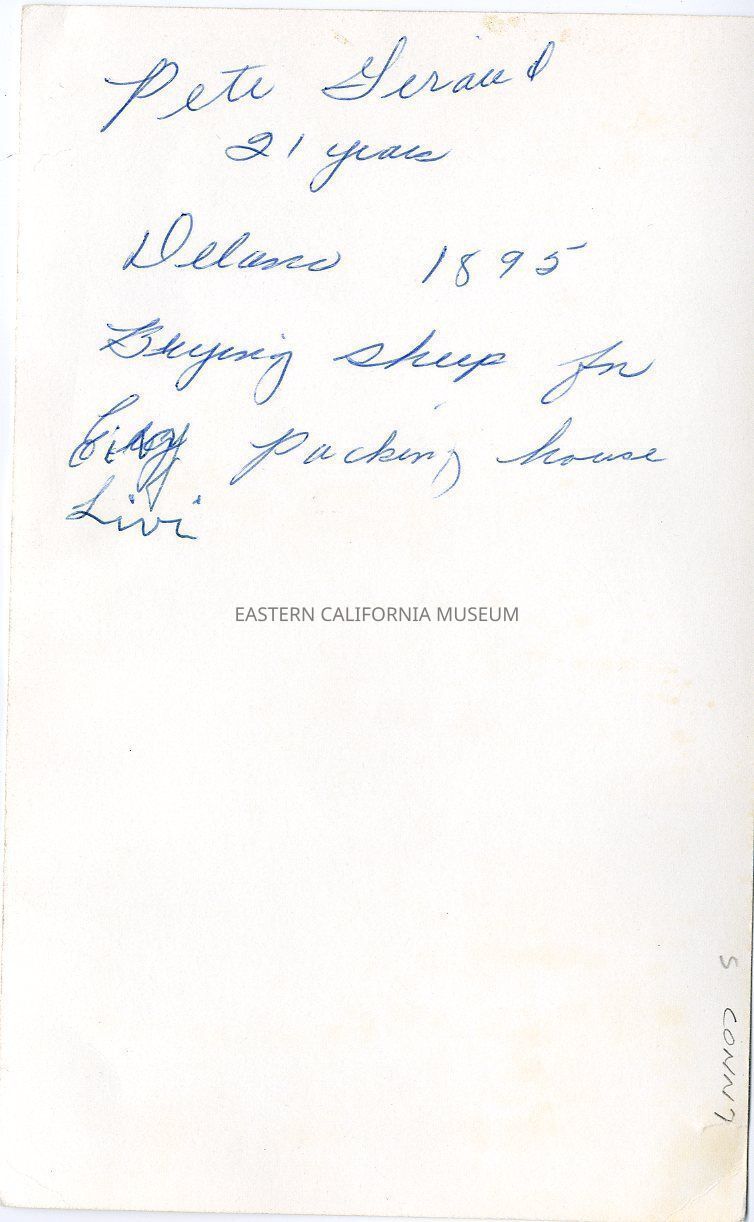 Pete Giraud
21 years
Delano 1895
Buying sheep for
packing house
Livi
EASTERN CALIFORNIA MUSEUM
5